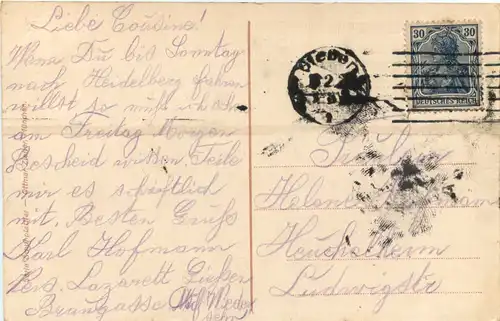 Liebe Cousine!
Wenn Du bis Sonntag
nach Heidelberg fahren
willst so muß ich schon
am Freitag Morgen
Bescheid wissen. Teile
mir es schriftlich
mit. Besten Gruß
Karl Hofmann
Res. Lazarett Gießen
Braugasse Auf Wieder
sehn
30 30
DEUTSCHES REICH
Fräulein
Helene
Heuchelheim
Ludwigstr